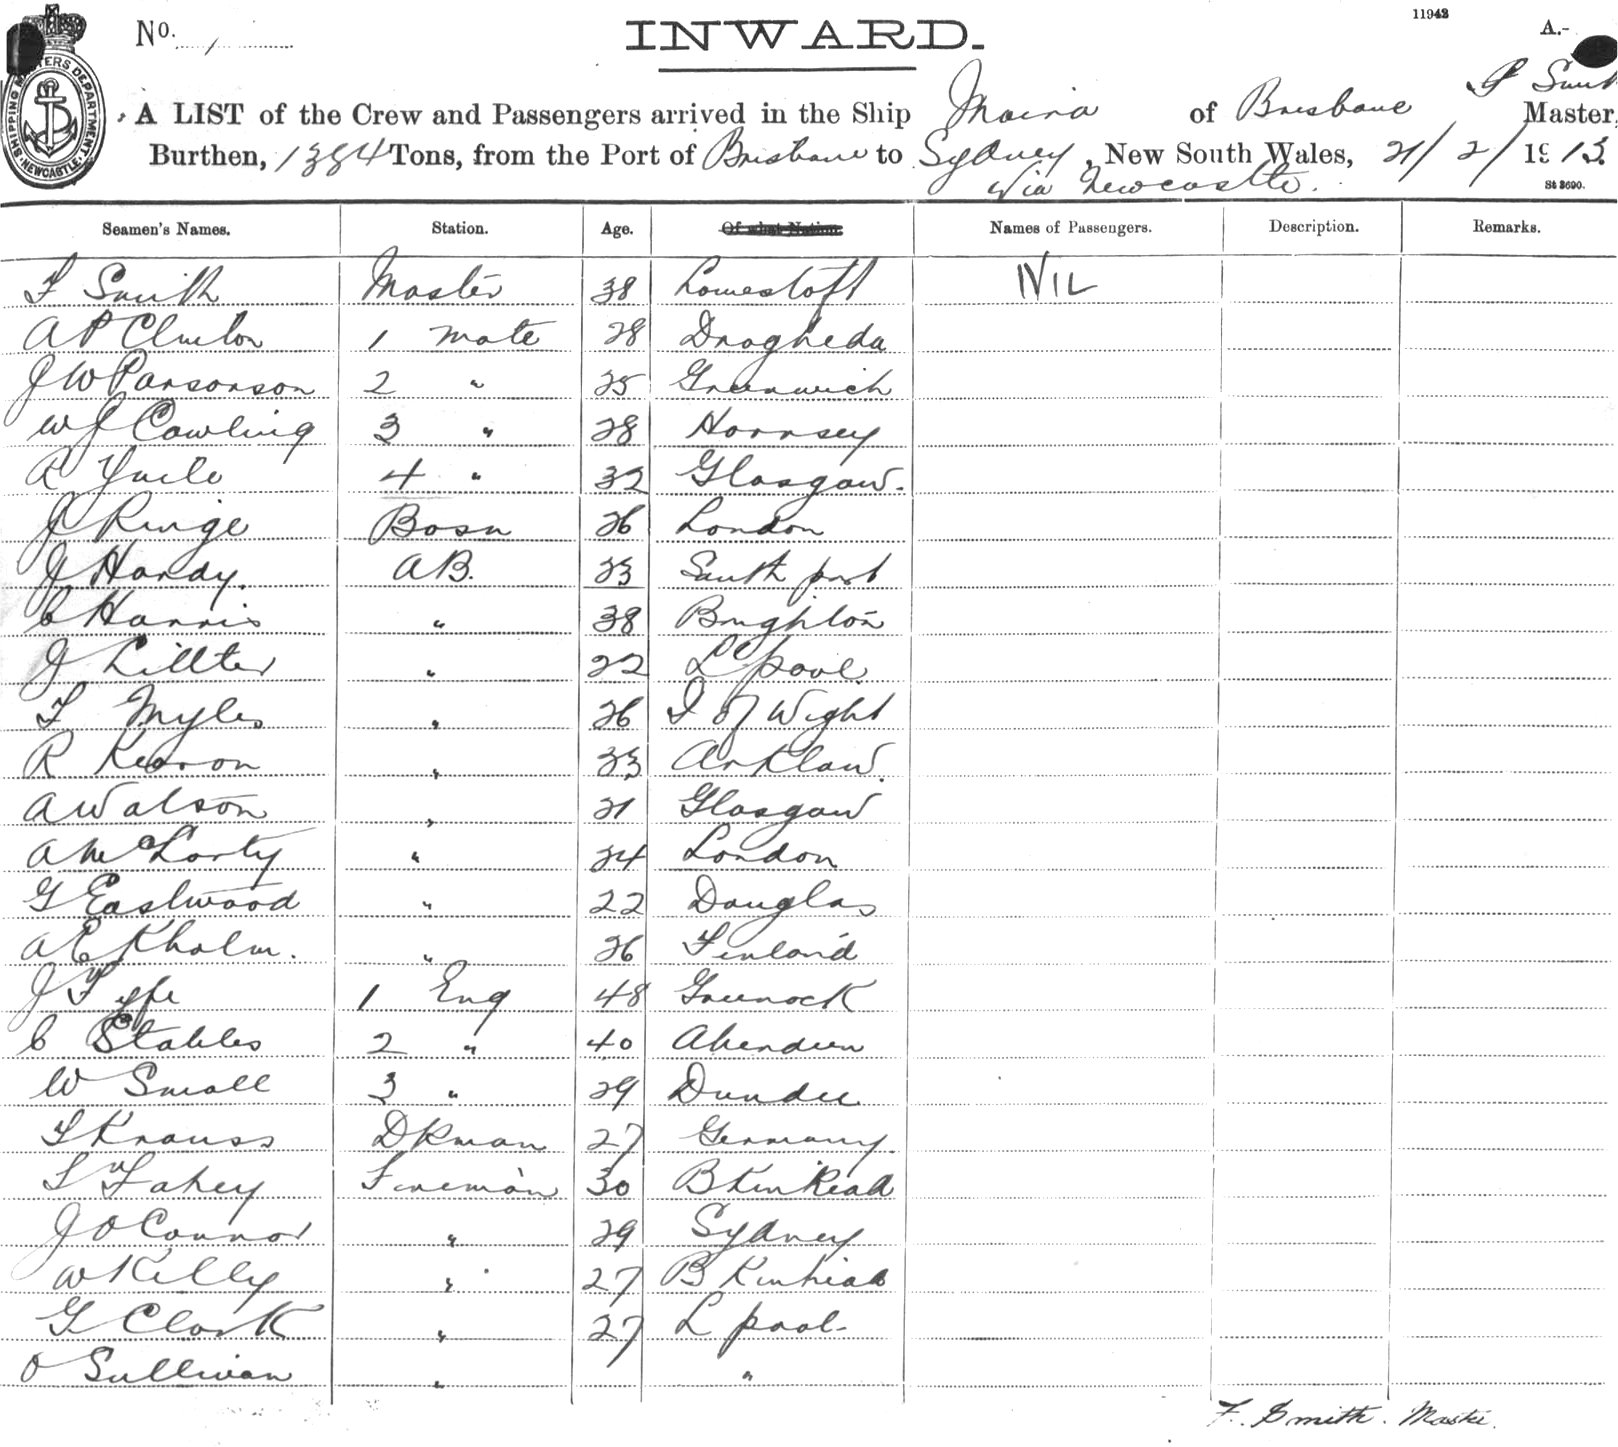 11942
No. 1
INWARD.
A.-
SHIPPING MASTERS DEPARTMENT NEWCASTLE
F Smith
A LIST of the Crew and Passengers arrived in the Ship Moira of Brisbane Master,
Burthen, 1384 Tons, from the Port of Brisbane to Sydney, New South Wales, 21/2/1913.
Via Newcastle.
St 3690.
Seamen's Names. Station. Age. Of what Nation Names of Passengers. Description. Remarks.
F Smith Master 38 Lowestoft NIL
A P Clinton 1 Mate 28 Drogheda
J W Parsonson 2 " 25 Greenwich
W J Cowling 3 " 28 Hornsey
R Yuile 4 " 32 Glasgow.
J Ringe Bosn 26 London
J Hardy. AB. 23 South port
C Harris " 38 Brighton
J Lillter " 22 L'pool.
F Myles " 26 I of Wight
R Kearon " 23 Arklow.
A Watson " 21 Glasgow
A McLorty " 24 London
G Eastwood " 22 Douglas
A Ekholm. " 26 Finland
J Fyfe 1 Eng 48 Greenock
C Stables 2 " 40 Aberdeen
W Small 3 " 29 Dundee
F Krauss DKman 27 Germany.
F Fahey Fireman 30 BKinhead
J O Connor " 29 Sydney
W Kelly " 27 B Kinhead
G Clark " 27 L pool
O Sullivan " "
F. Smith. Master.